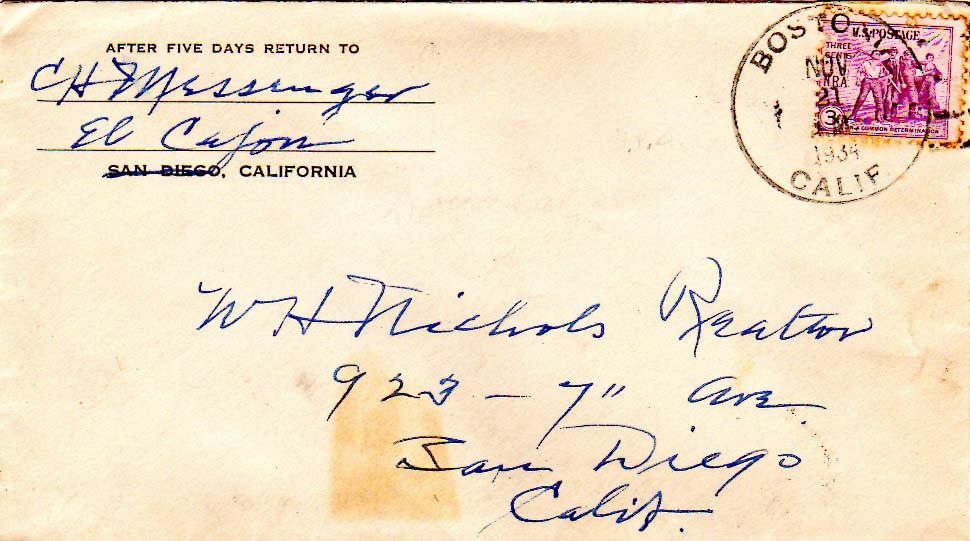 AFTER FIVE DAYS RETURN TO
C H Messenger
El Cajon
SAN DIEGO, CALIFORNIA
BOSTONIA
NOV
21
1934
CALIF.
U.S. POSTAGE
THREE
CENTS
NRA
3¢
IN A COMMON DETERMINATION
W H Nichols Realtor
923 - 7" Ave
San Diego
Calif.